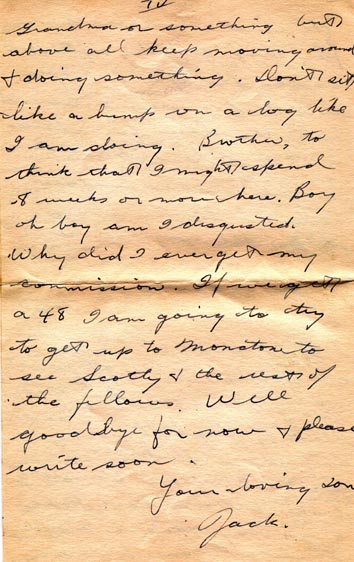 IV
Grandma or something but
above all keep moving around
& doing something. Don't sit
like a bump on a log like
I am doing. Brother, to
think that I might spend
8 weeks or more here. Boy
oh boy am I disgusted.
Why did I ever get my
commission. If we get
a 48 I am going to try
to get up to Moncton to
see Scotty & the rest of
the fellows. Well
goodbye for now & please
write soon.
Your loving son
Jack.